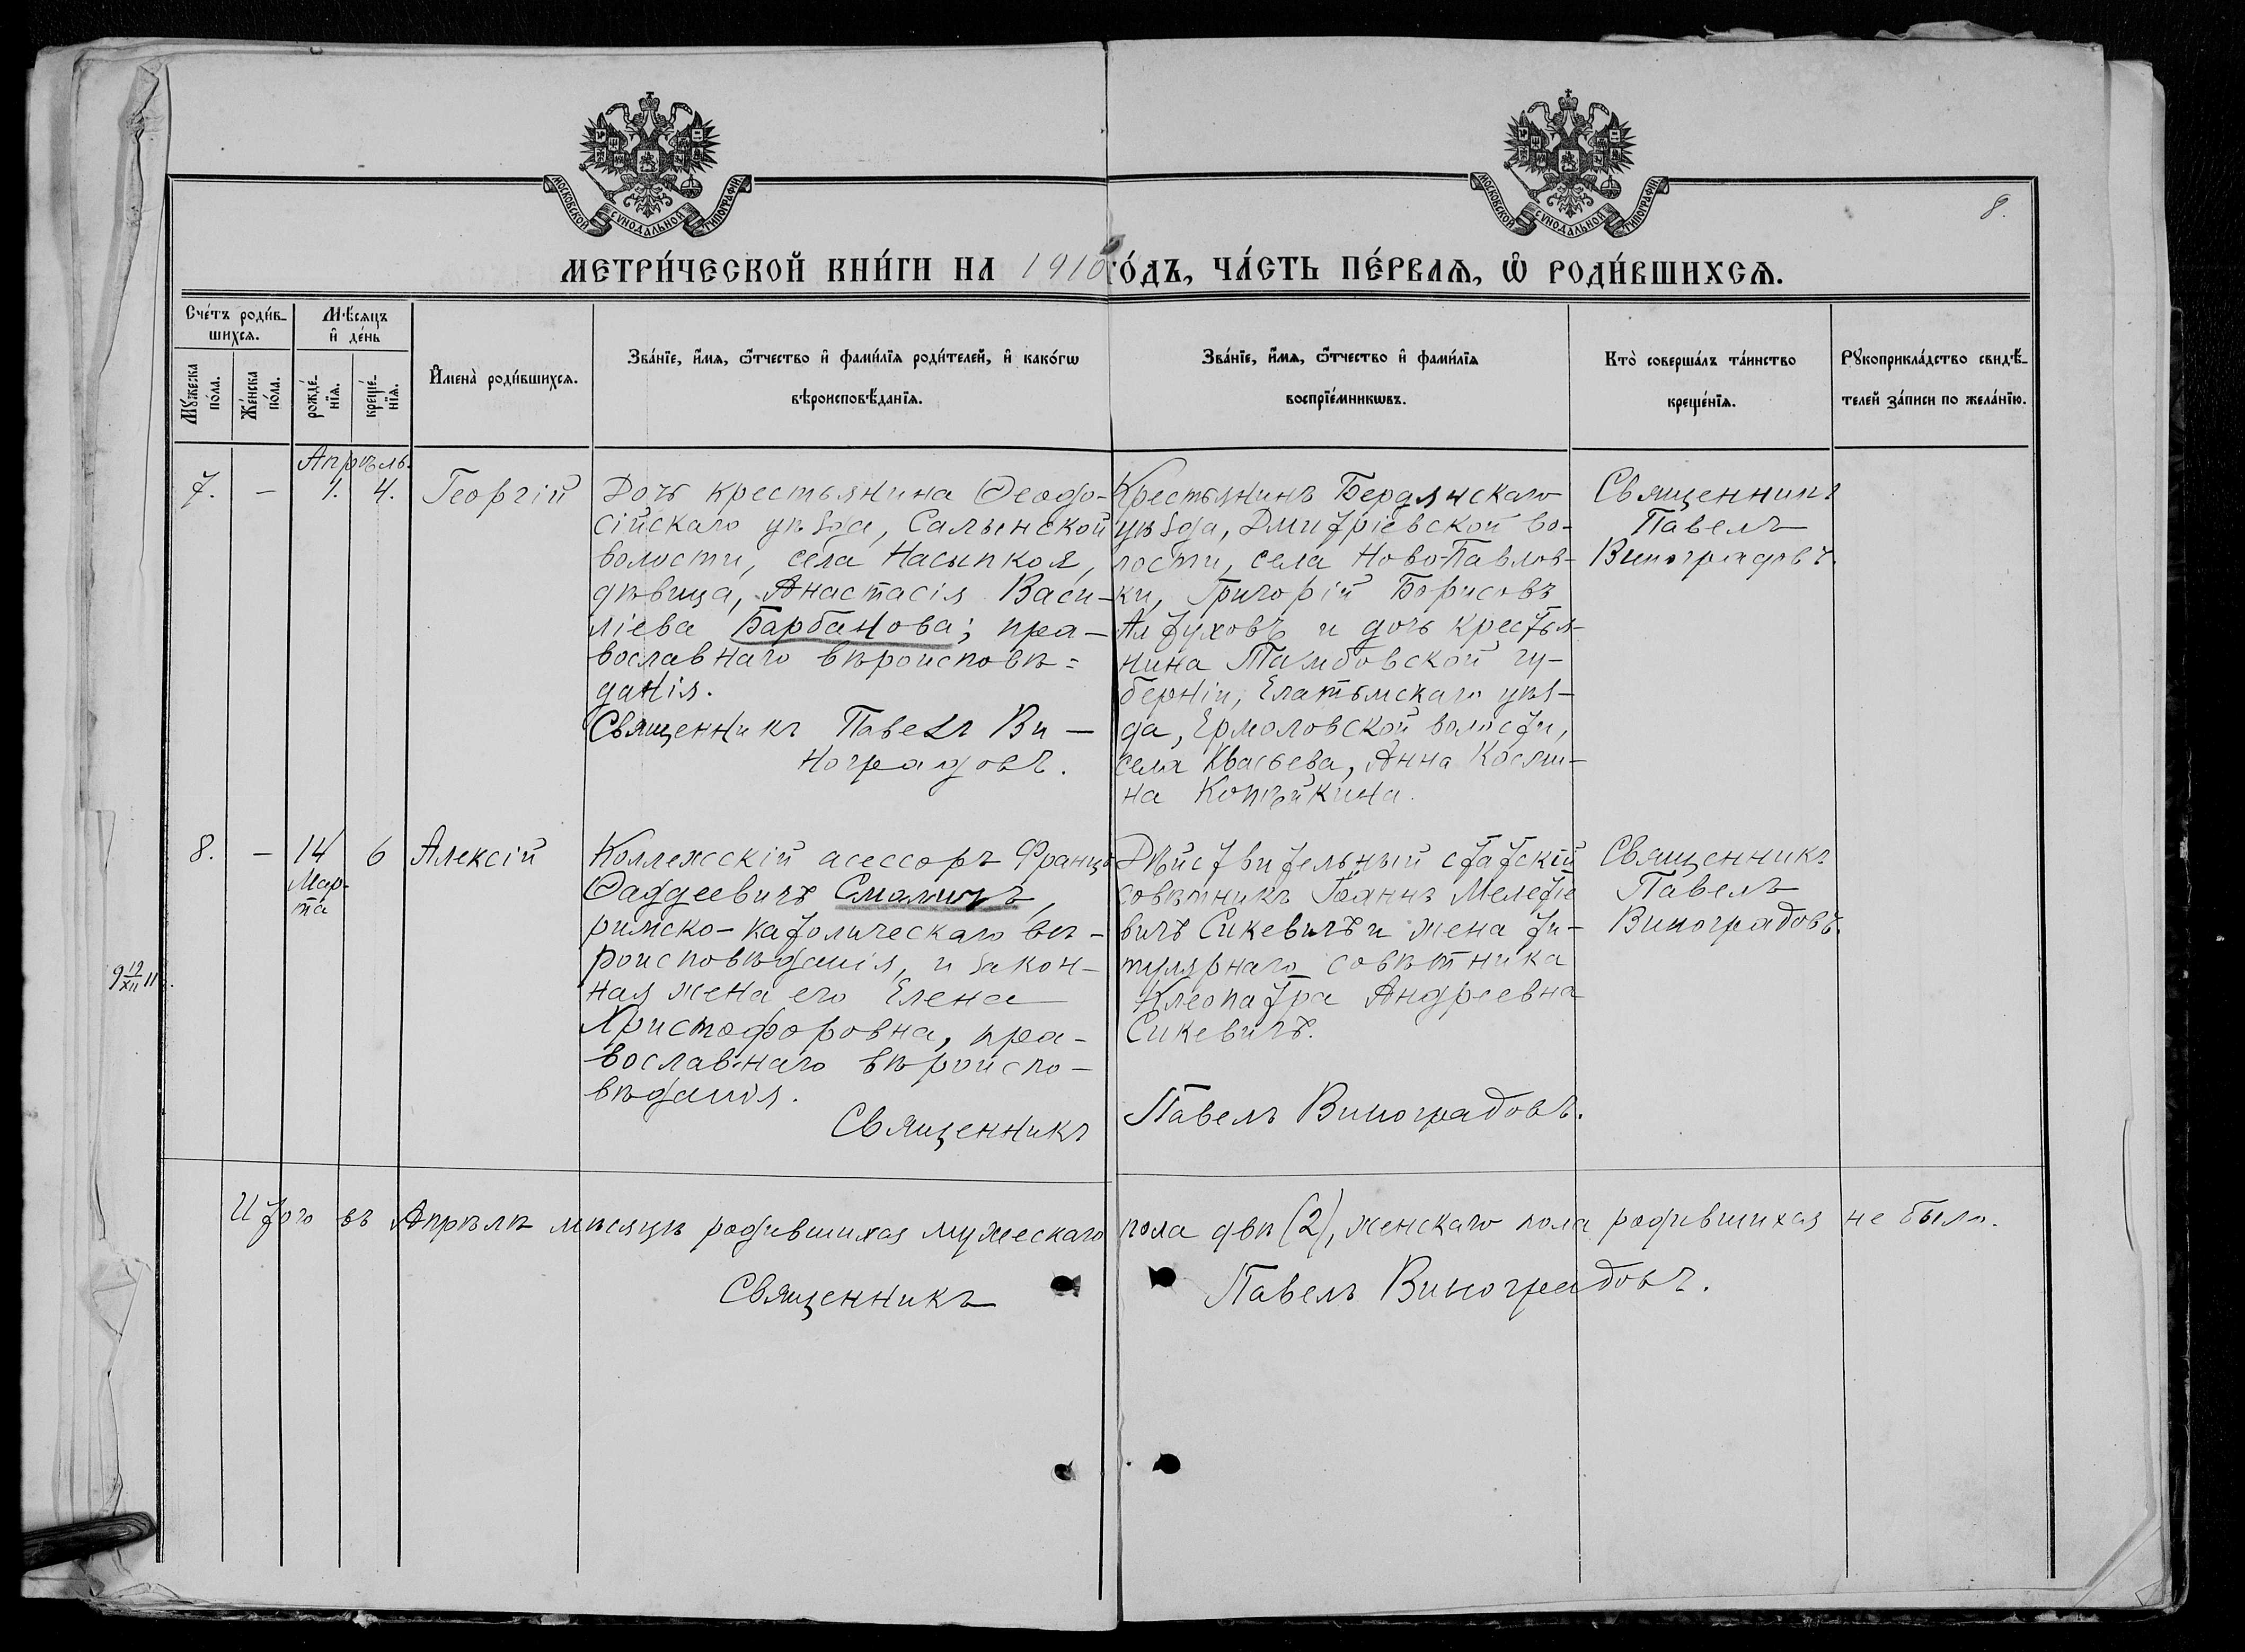 МОСКОВСКОЙ СѴНОДАЛЬНОЙ ТИПОГРАФІИ
МОСКОВСКОЙ СѴНОДАЛЬНОЙ ТИПОГРАФІИ
8.
МЕТРИ́ЧЕСКОЙ КНИ́ГИ НА 1910 ГО́ДЪ, ЧА́СТЬ ПЕ́РВАѦ, Ѡ҆ РОДИ́ВШИХСѦ.
Сче́тъ роди́в-
шихсѧ.
Мѣ́сѧцъ
и҆ де́нь
Мꙋ́жеска
по́ла.
Же́нска
по́ла.
рожде́-
нїѧ.
креще́-
нїѧ.
И҆мена̀ роди́вшихсѧ.
Зва́нїе, и҆́мѧ, ѻ҆́тчество и҆ фами́лїѧ роди́телей, и҆ како́гѡ
вѣроисповѣ́данїѧ.
Зва́нїе, и҆́мѧ, ѻ҆́тчество и҆ фами́лїѧ
воспрїе́мникѡвъ.
Кто̀ соверша́лъ та́инство
креще́нїѧ.
Рꙋкоприкла́дство свидѣ́-
телей за́писи по жела́нїю.
Апрѣль.
7. — 1. 4. Георгій
Дочь крестьянина Ѳеодо-
сійскаго уѣзда, Салынской
волости, села Насыпкоя,
дѣвица, Анастасія Васи-
ліева Барбанова; пра-
вославнаго вѣроисповѣ=
данія.
Священникъ Павелъ Ви-
ноградовъ.
Крестьянинъ Бердянскаго
уѣзда, Дмитріевской во-
лости, села Ново-Павлов-
ки, Григорій Борисовъ
Алтуховъ и дочь крестья-
нина Тамбовской гу-
берніи, Елатьмскаго уѣз-
да, Ермоловской волости,
села Квасьева, Анна Косми-
на Копѣйкина.
Священникъ
Павелъ
Виноградовъ.
8. — 14 6 Алексій
Мар-
та
Коллежскій асессоръ Францъ
Ѳаддеевичъ
римско-католическаго вѣ-
роисповѣданія, и закон-
ная жена его Елена
Христофоровна, пра-
вославнаго вѣроиспо-
вѣданія.
Священникъ
Дѣйствительный статскій
совѣтникъ Іоаннъ Мелетіе
вичъ Сикевичъ и жена ти-
тулярнаго совѣтника
Клеопатра Андреевна
Сикевичъ.
Павелъ Виноградовъ.
Священникъ
Павелъ
Виноградовъ.
Итого въ Апрѣлѣ мѣсяцѣ родившихся мужескаго пола двѣ (2), женскаго пола родившихся не было.
Священникъ Павелъ Виноградовъ.